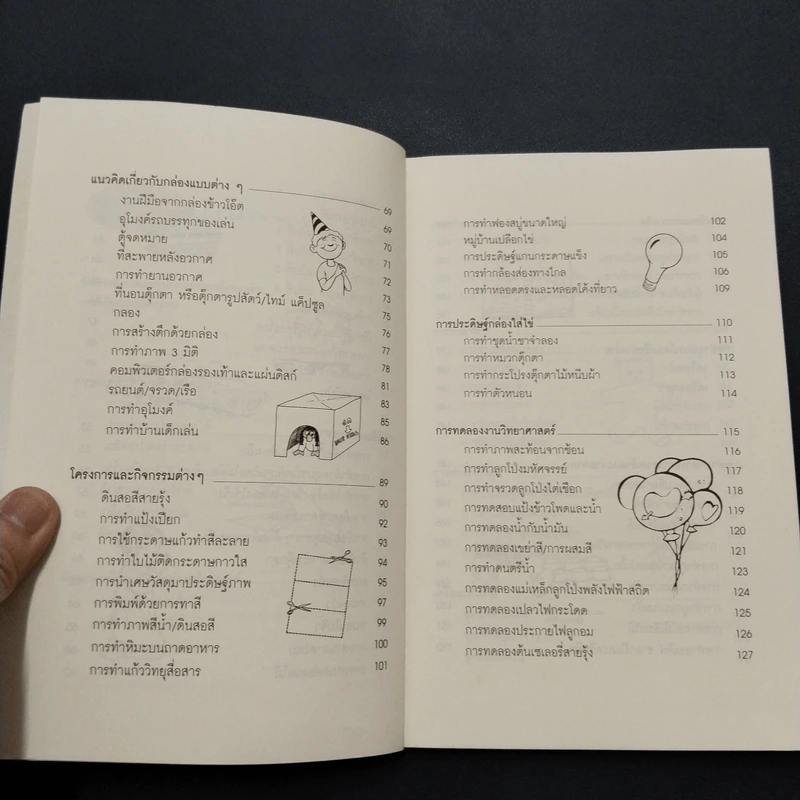 แนวคิดเกี่ยวกับกล่องแบบต่าง ๆ 69
งานฝีมือจากกล่องข้าวโอ๊ต 69
อุโมงค์รถบรรทุกของเล่น 70
ตู้จดหมาย 71
ที่สะพายหลังอวกาศ 72
การทำยานอวกาศ 73
ที่นอนตุ๊กตา หรือตุ๊กตารูปสัตว์/ไทม์ แค็ปซูล 75
กลอง 76
การสร้างตึกด้วยกล่อง 77
การทำภาพ 3 มิติ 78
คอมพิวเตอร์กล่องรองเท้าและแผ่นดิสก์ 81
รถยนต์/จรวด/เรือ 83
การทำอุโมงค์ 85
การทำบ้านเด็กเล่น 86
โครงการและกิจกรรมต่างๆ 89
ดินสอสีสายรุ้ง 90
การทำแป้งเปียก 92
การใช้กระดาษแก้วทำสีละลาย 93
การทำใบไม้ติดกระดาษกาวใส 94
การนำเศษวัสดุมาประดิษฐ์ภาพ 95
การพิมพ์ด้วยการทาสี 97
การทำภาพสีน้ำ/ดินสอสี 99
การทำหิมะบนถาดอาหาร 100
การทำแก้ววิทยุสื่อสาร 101
การทำฟองสบู่ขนาดใหญ่ 102
หมู่บ้านเปลือกไข่ 104
การประดิษฐ์แกนกระดาษแข็ง 105
การทำกล้องส่องทางไกล 106
การทำหลอดตรงและหลอดโค้งที่ยาว 109
การประดิษฐ์กล่องใส่ไข่ 110
การทำชุดน้ำชาจำลอง 111
การทำหมวกตุ๊กตา 112
การทำกระโปรงตุ๊กตาไม้หนีบผ้า 113
การทำตัวหนอน 114
การทดลองงานวิทยาศาสตร์ 115
การทำภาพสะท้อนจากช้อน 116
การทำลูกโป่งมหัศจรรย์ 117
การทำจรวดลูกโป่งไต่เชือก 118
การทดสอบแป้งข้าวโพดและน้ำ 119
การทดลองน้ำกับน้ำมัน 120
การทดลองเขย่าสี/การผสมสี 121
การทำดนตรีน้ำ 123
การทดลองแม่เหล็กลูกโป่งพลังไฟฟ้าสถิต 124
การทดลองเปลวไฟกระโดด 125
การทดลองประกายไฟลูกอม 126
การทดลองต้นเซเลอรี่สายรุ้ง 127